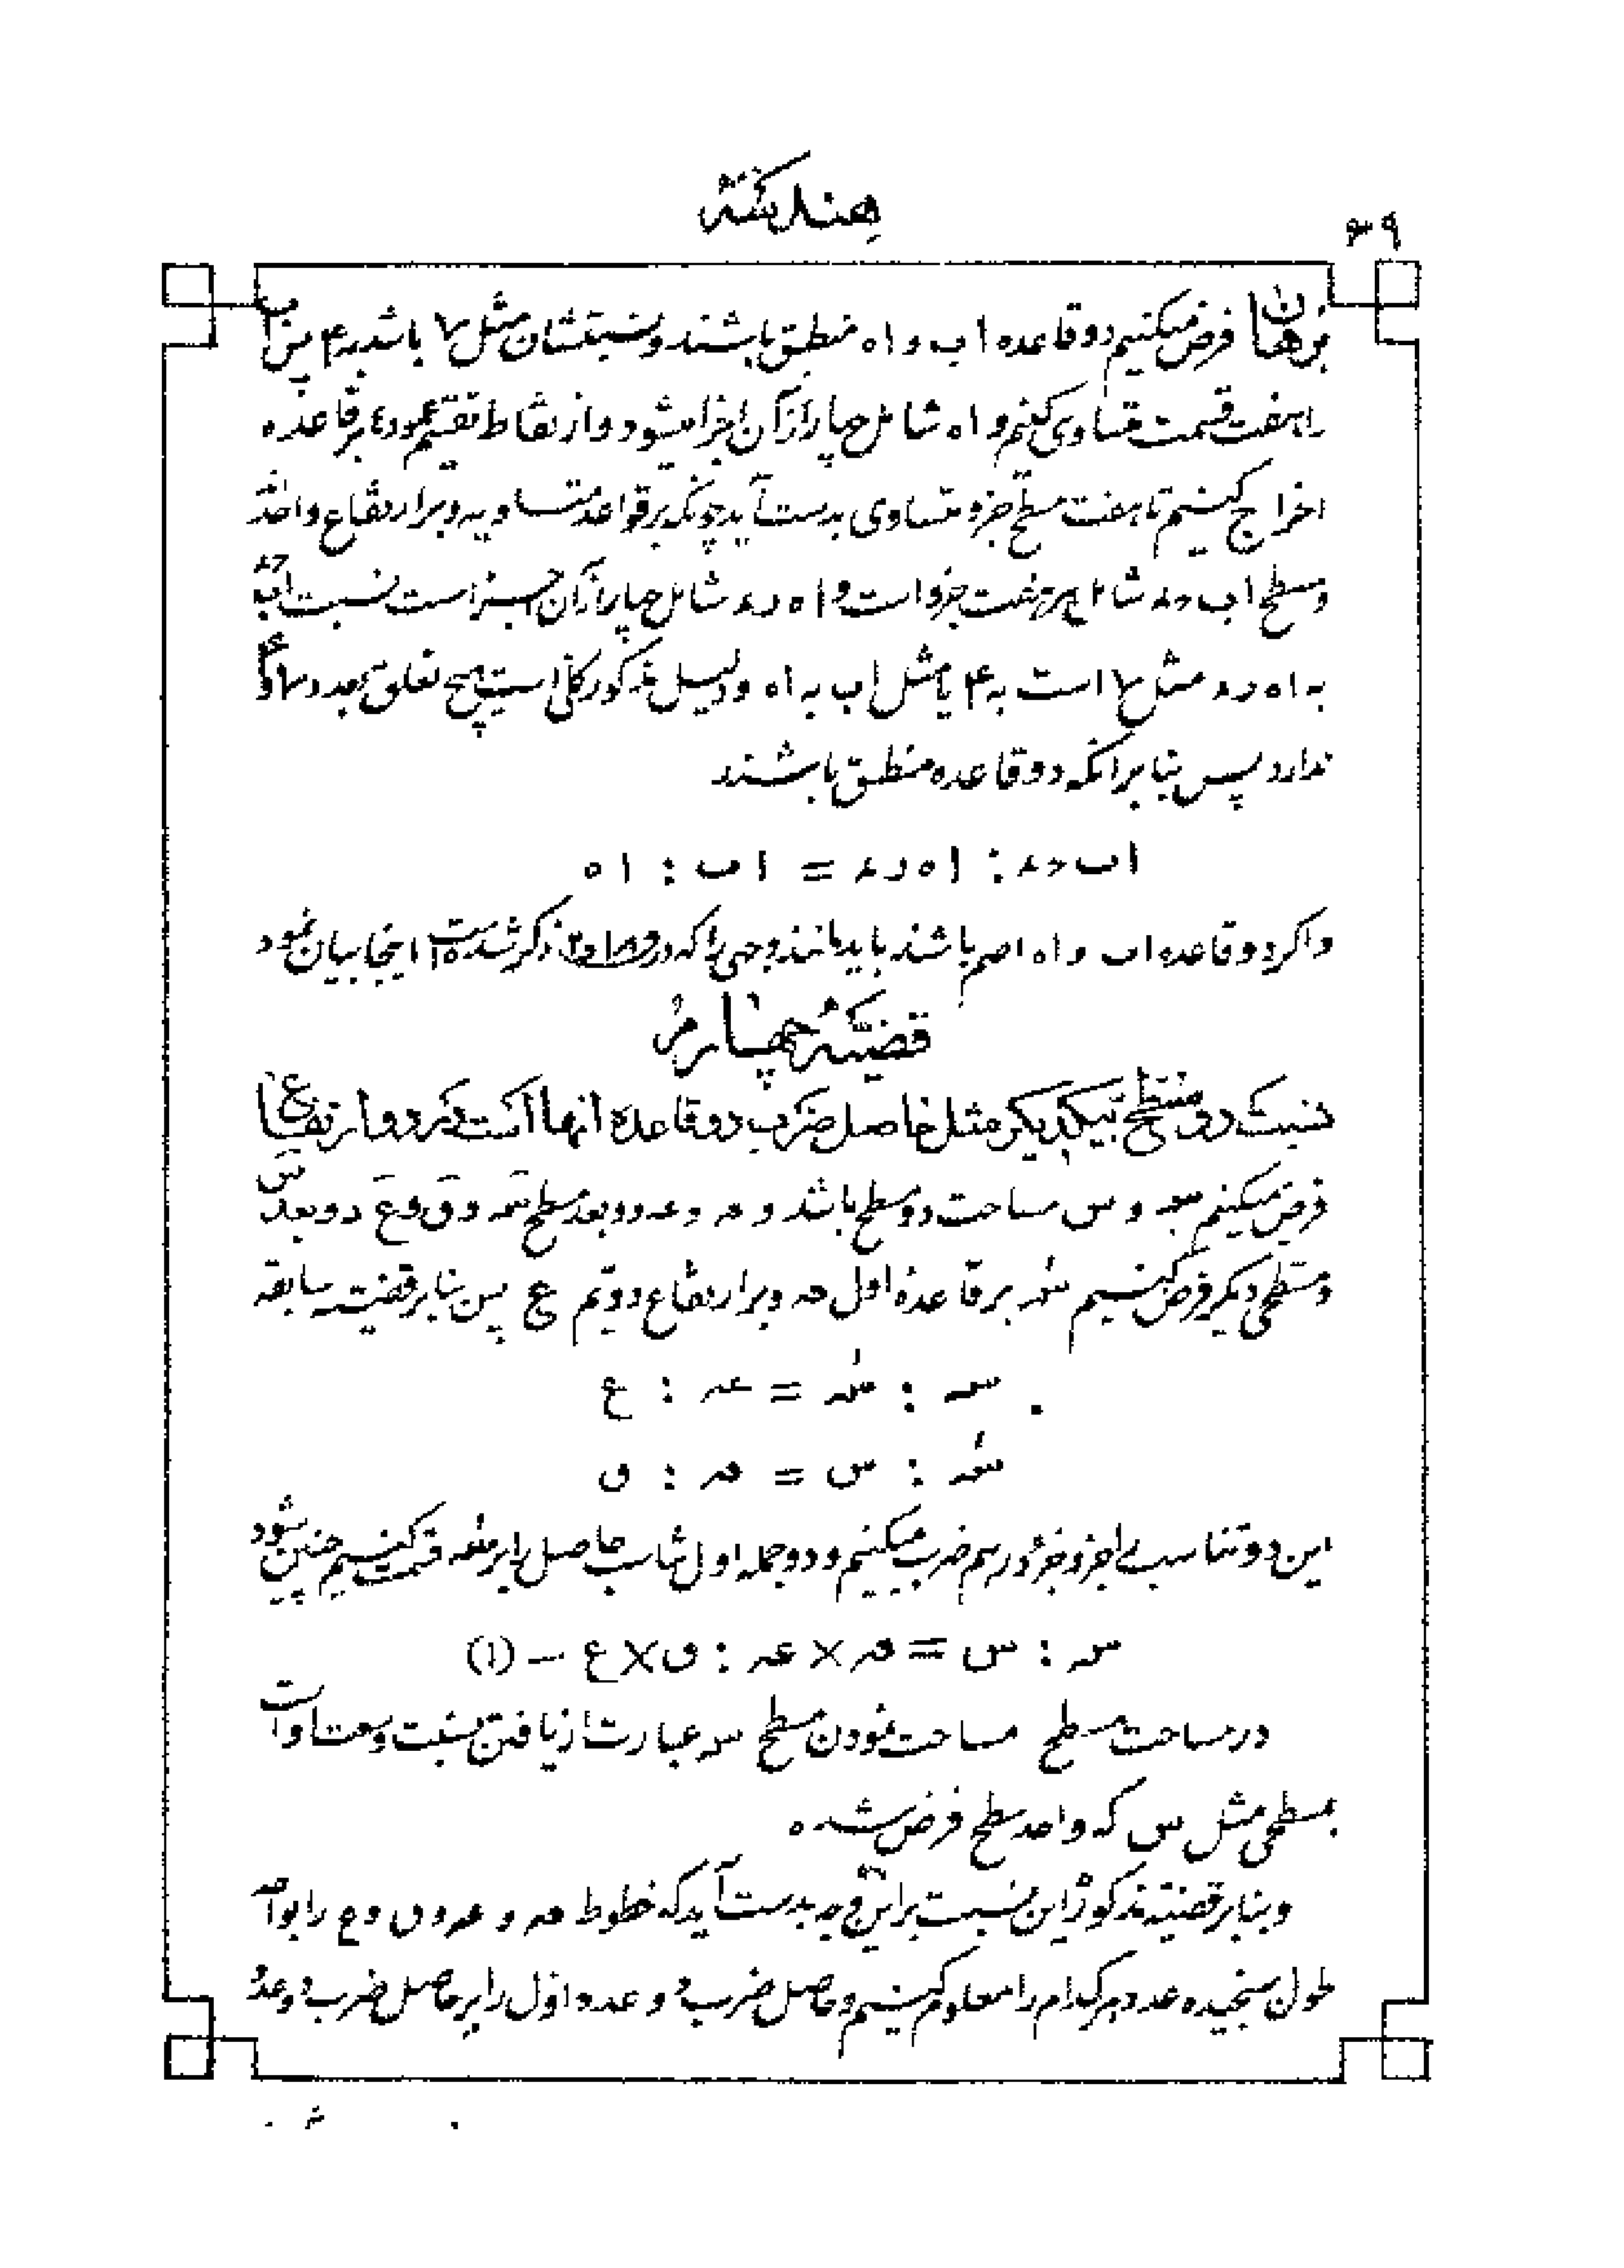 هندسه
۶۹
برهان فرض میکنیم دو قاعده اب و اه منطبق باشند و نسبتشان مثل ۷ باشد به ۴ پس اب
را بهفت قسمت متساوی کنیم و اه شامل چهار از آن اجزا میشود و از نقاط تقسیم عمودها بر قاعده
اخراج کنیم تا هفت سطح جزو متساوی بدست آید چونکه بر قواعد متساویه و بر ارتفاع واحدند
و سطح اب حد شامل هر هفت جزو است و اه رد شامل چهار از آن جزء است نسبت اب حد
به اه رد مثل ۷ است به ۴ یا مثل اب به اه و دلیل مذکور کلی است هیچ تعلق بعدد ۷ و ۴
ندارد پس بنا بر انکه دو قاعده منطبق باشند
اب حد : اه رد = اب : اه
و اکر دو قاعده اب و اه اصم باشند باید مانند وجهی را که در ذکر شده است اینجا بیان نمود
قضیّه چهارم
نسبت دو مستطیح بیکدیکر مثل حاصل ضرب دو قاعدۀ انها است در دو ارتفاع
فرض میکنیم سه و س مساحت دو سطح باشد و قه و عه دو بعد سطح سه و ق و ع دو بعد س
و سطحی دیکر فرض کنیم سَه بر قاعدۀ اول قه و بر ارتفاع دویّم ع پس بنا بر قضیّه سابقه
سه : سَه = عه : ع
سَه : س = قه : ق
این دو تناسب را جزو جزو در هم ضرب میکنیم و دو جمله اول تناسب حاصل را بر سَه قسمت کنیم چنین شود
سه : س = قه × عه : ق × ع – (۱)
در مساحت سطح مساحت نمودن سطح سه عبارت از یافتن نسبت وسعت او است
بسطحی مثل س که واحد سطح فرض شده
و بنا بر قضیّه مذکور این نسبت بر این وجه بدست آید که خطوط قه و عه و ق و ع را بواحد
طول سنجیده عدد هر کدام را معلوم کنیم و حاصل ضرب دو عدد اول را بر حاصل ضرب دو عدد